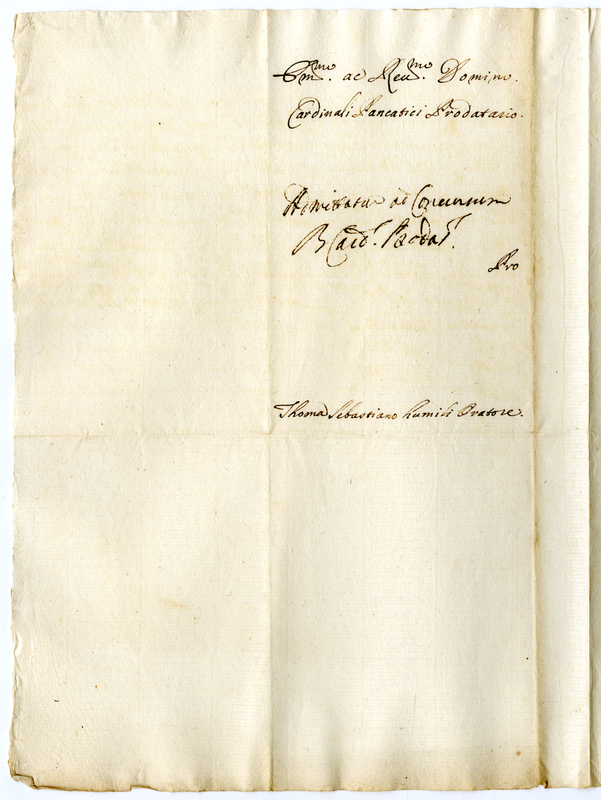 Em.mo ac Reu.mo Domino.
Cardinali Pancatici Prodatario.
Admittatur ad Concursum
B Card.l Prodat.s
Pro
Thoma Sebastiano humili Oratore.